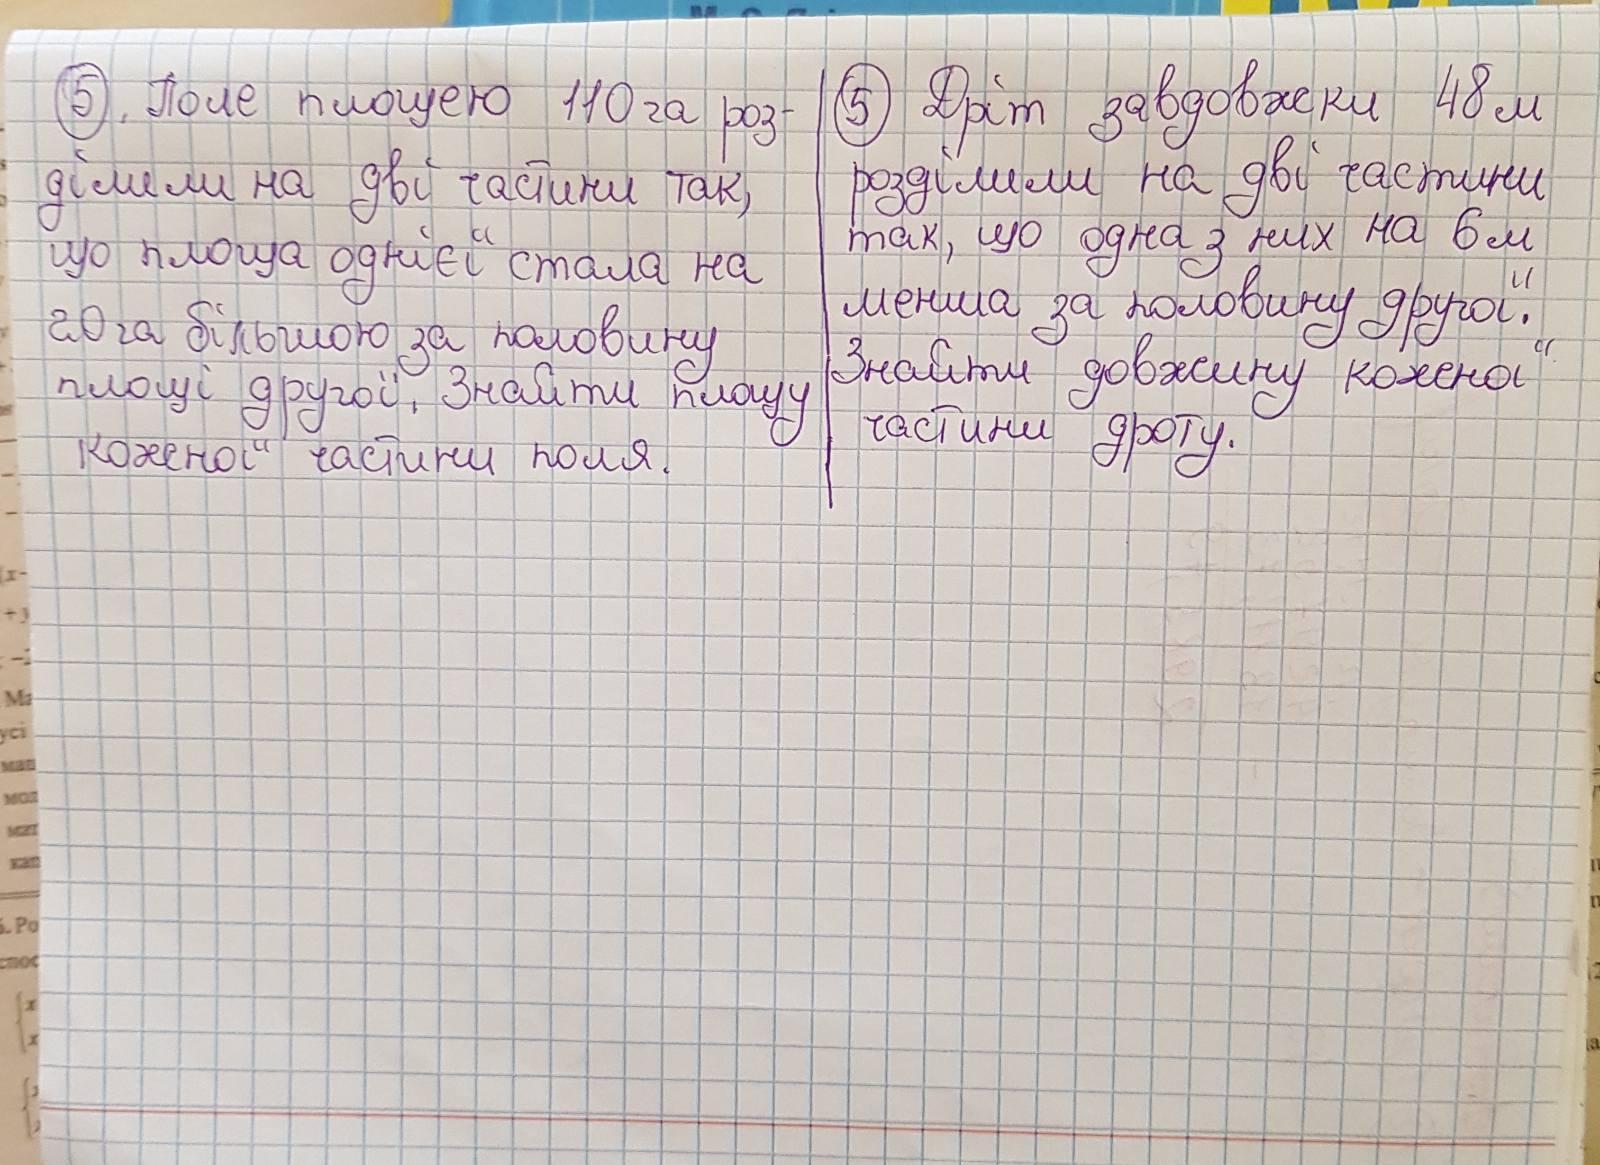 5. Поле площею 110 га роз-
ділили на дві частини так,
що площа однієї стала на
20 га більшою за половину
площі другої. Знайти площу
кожної частини поля.
5 Дріт завдовжки 48 м
розділили на дві частини
так, що одна з них на 6 м
менша за половину другої.
Знайти довжину кожної
частини дроту.